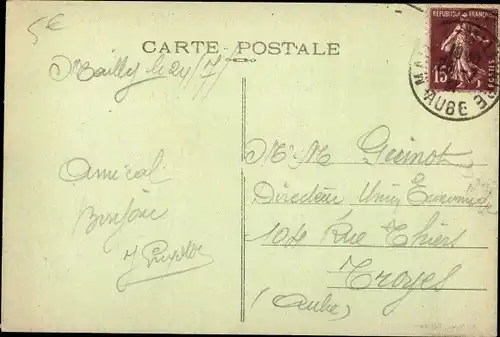 5€
CARTE POSTALE
REPUBLIQUE FRANÇAISE
15c
AUBE
Mailly le 24/7/
Amical
Bonjour
Mr M Guinot
Directeur Union
104 Rue Thiers
Troyes
(Aube)